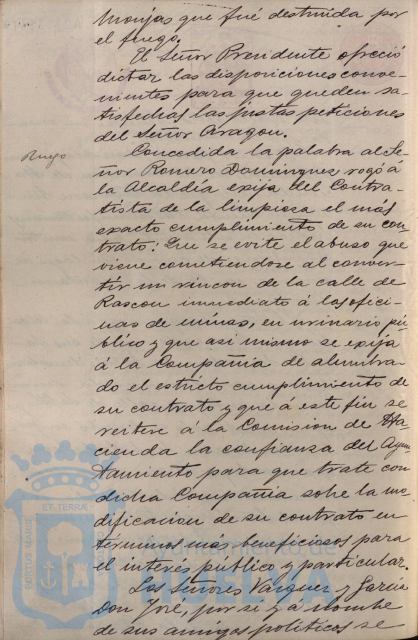 Monjas que fué destruida por
el fuego.
El Señor Presidente ofreció
dictar las disposiciones conve-
nientes para que queden sa-
tisfechas las justas peticiones
del Señor Aragon.
Ruego
Concedida la palabra al Se-
ñor Romero Dominguez rogó á
la Alcaldía exija del Contra-
tista de la limpieza el más
exacto cumplimiento de su con
trato: Que se evite el abuso que
viene cometiendose al conver-
tir un rincon de la calle de
Rascon inmediato á las ofici-
nas de minas, en urinario pú-
blico y que asi mismo se exija
á la Compañia de alumbra-
do el estricto cumplimiento de
su contrato y que á este fin se
reitere á la Comision de Ha-
cienda la confianza del Ayun
tamiento para que trate con
dicha Compañia sobre la mo-
dificacion de su contrato en
términos más beneficiosos para
el interés público y particular.
Los Señores Vazquez y Garcia
Don José, por si y á nombre
de sus amigos politicos se
PORTUS MARIS
ET TERRÆ
Ayuntamiento de
HUELVA